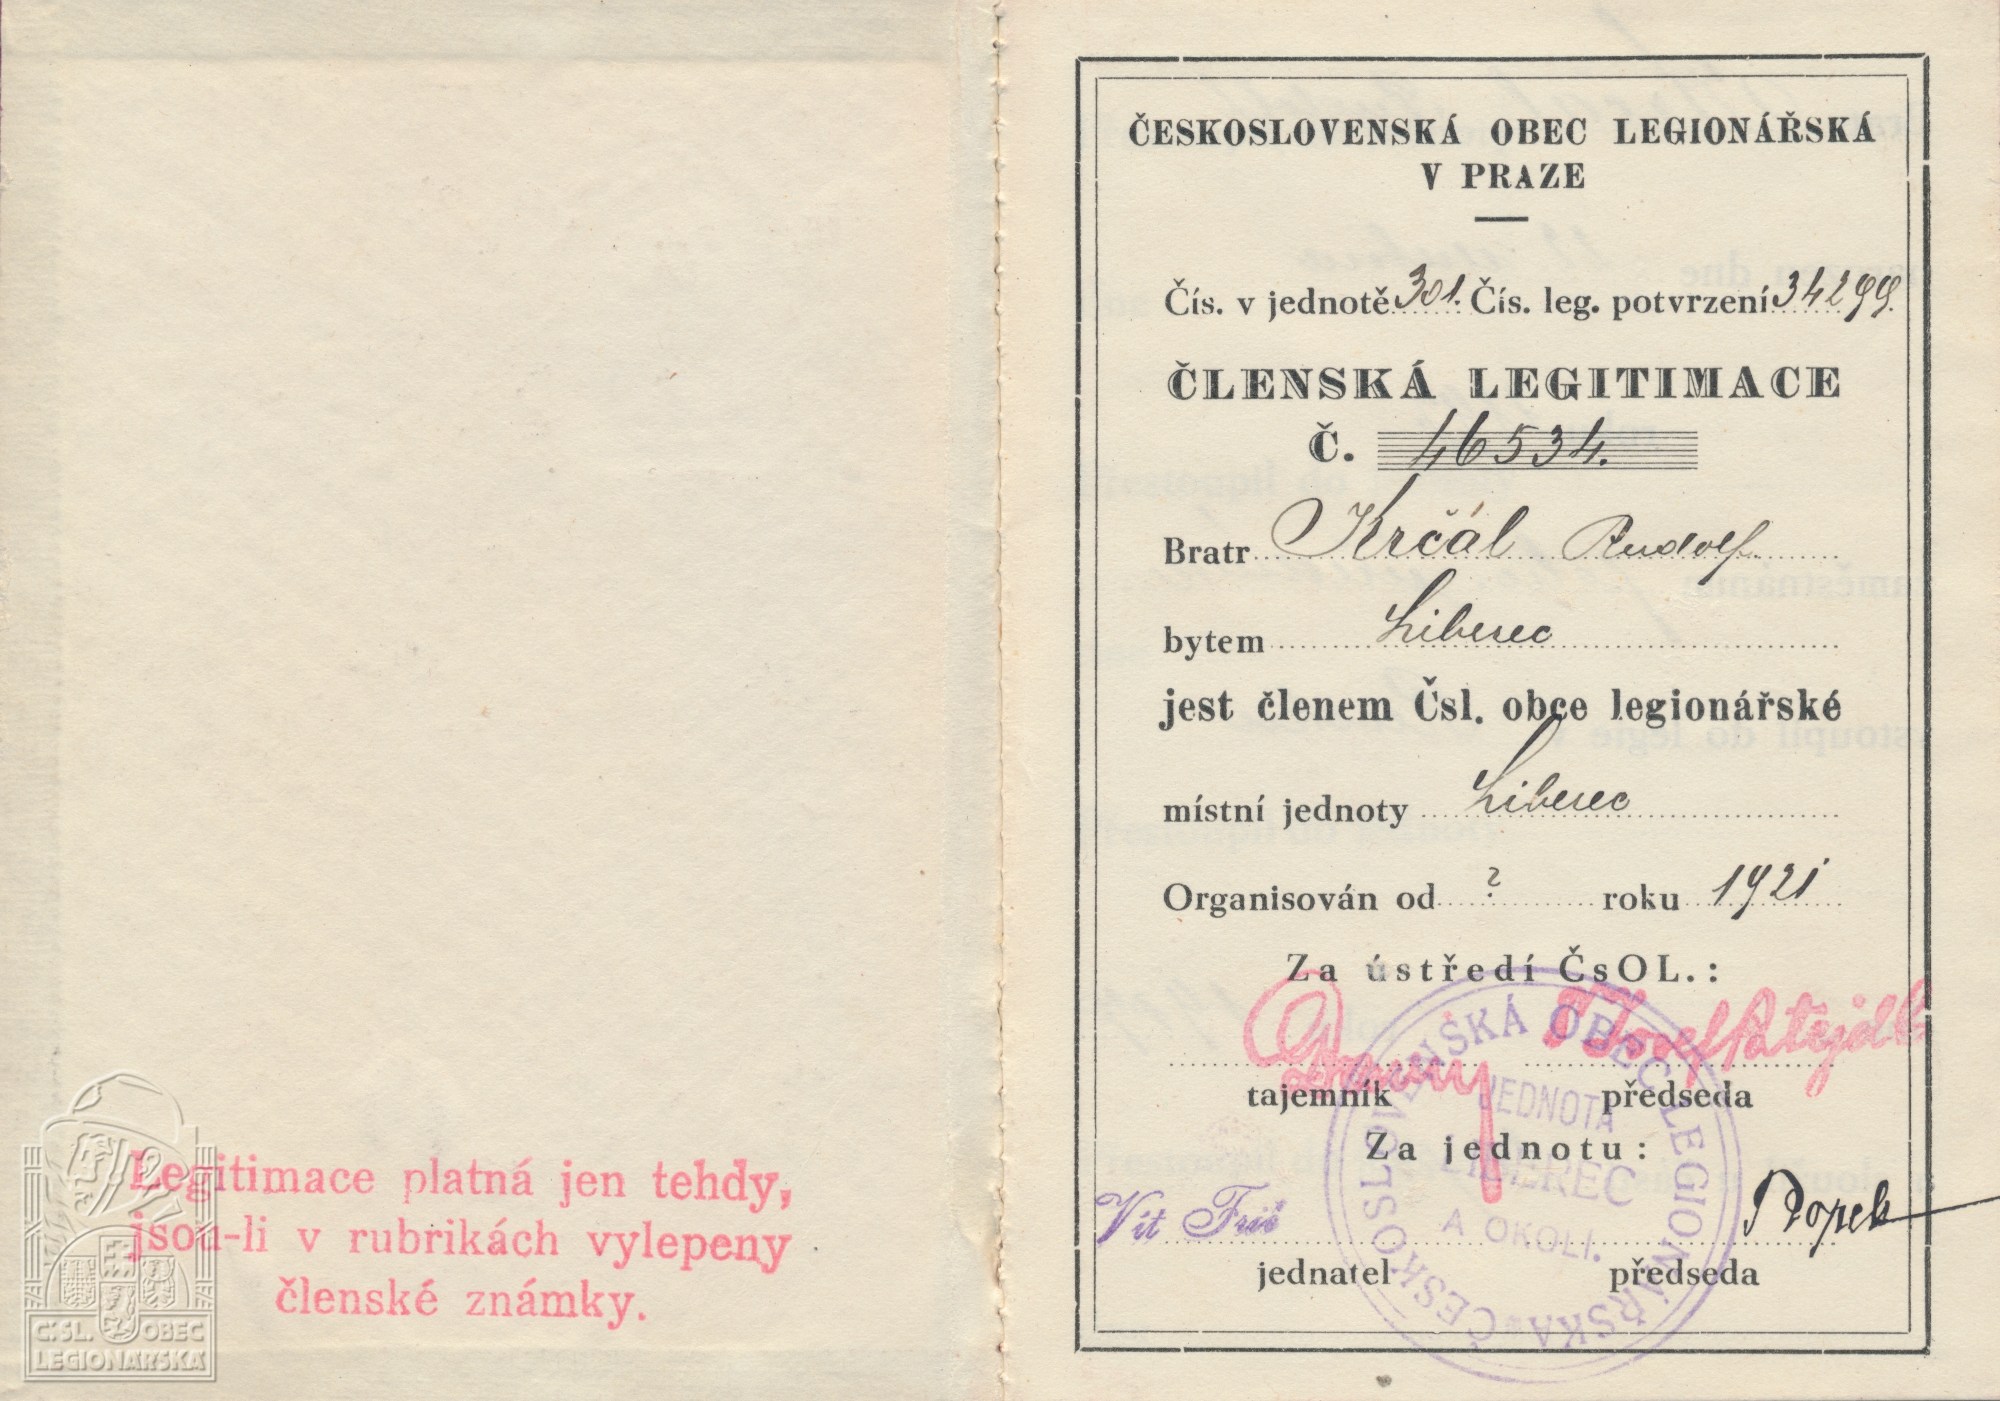 Legitimace platná jen tehdy,
jsou-li v rubrikách vylepeny
členské známky.
Č.SL. OBEC
LEGIONÁŘSKÁ
ČESKOSLOVENSKÁ OBEC LEGIONÁŘSKÁ
V PRAZE
Čís. v jednotě 301. Čís. leg. potvrzení 34299.
ČLENSKÁ LEGITIMACE
Č. 46534.
Bratr Krčál Rudolf
bytem Liberec
jest členem Čsl. obce legionářské
místní jednoty Liberec
Organisován od ? roku 1921
Za ústředí ČsOL.:
Josef Patejdl
tajemník předseda
Za jednotu:
Vít Frič
jednatel předseda
ČESKOSLOVENSKÁ OBEC LEGIONÁŘSKÁ
JEDNOTA
LIBEREC
A OKOLI.